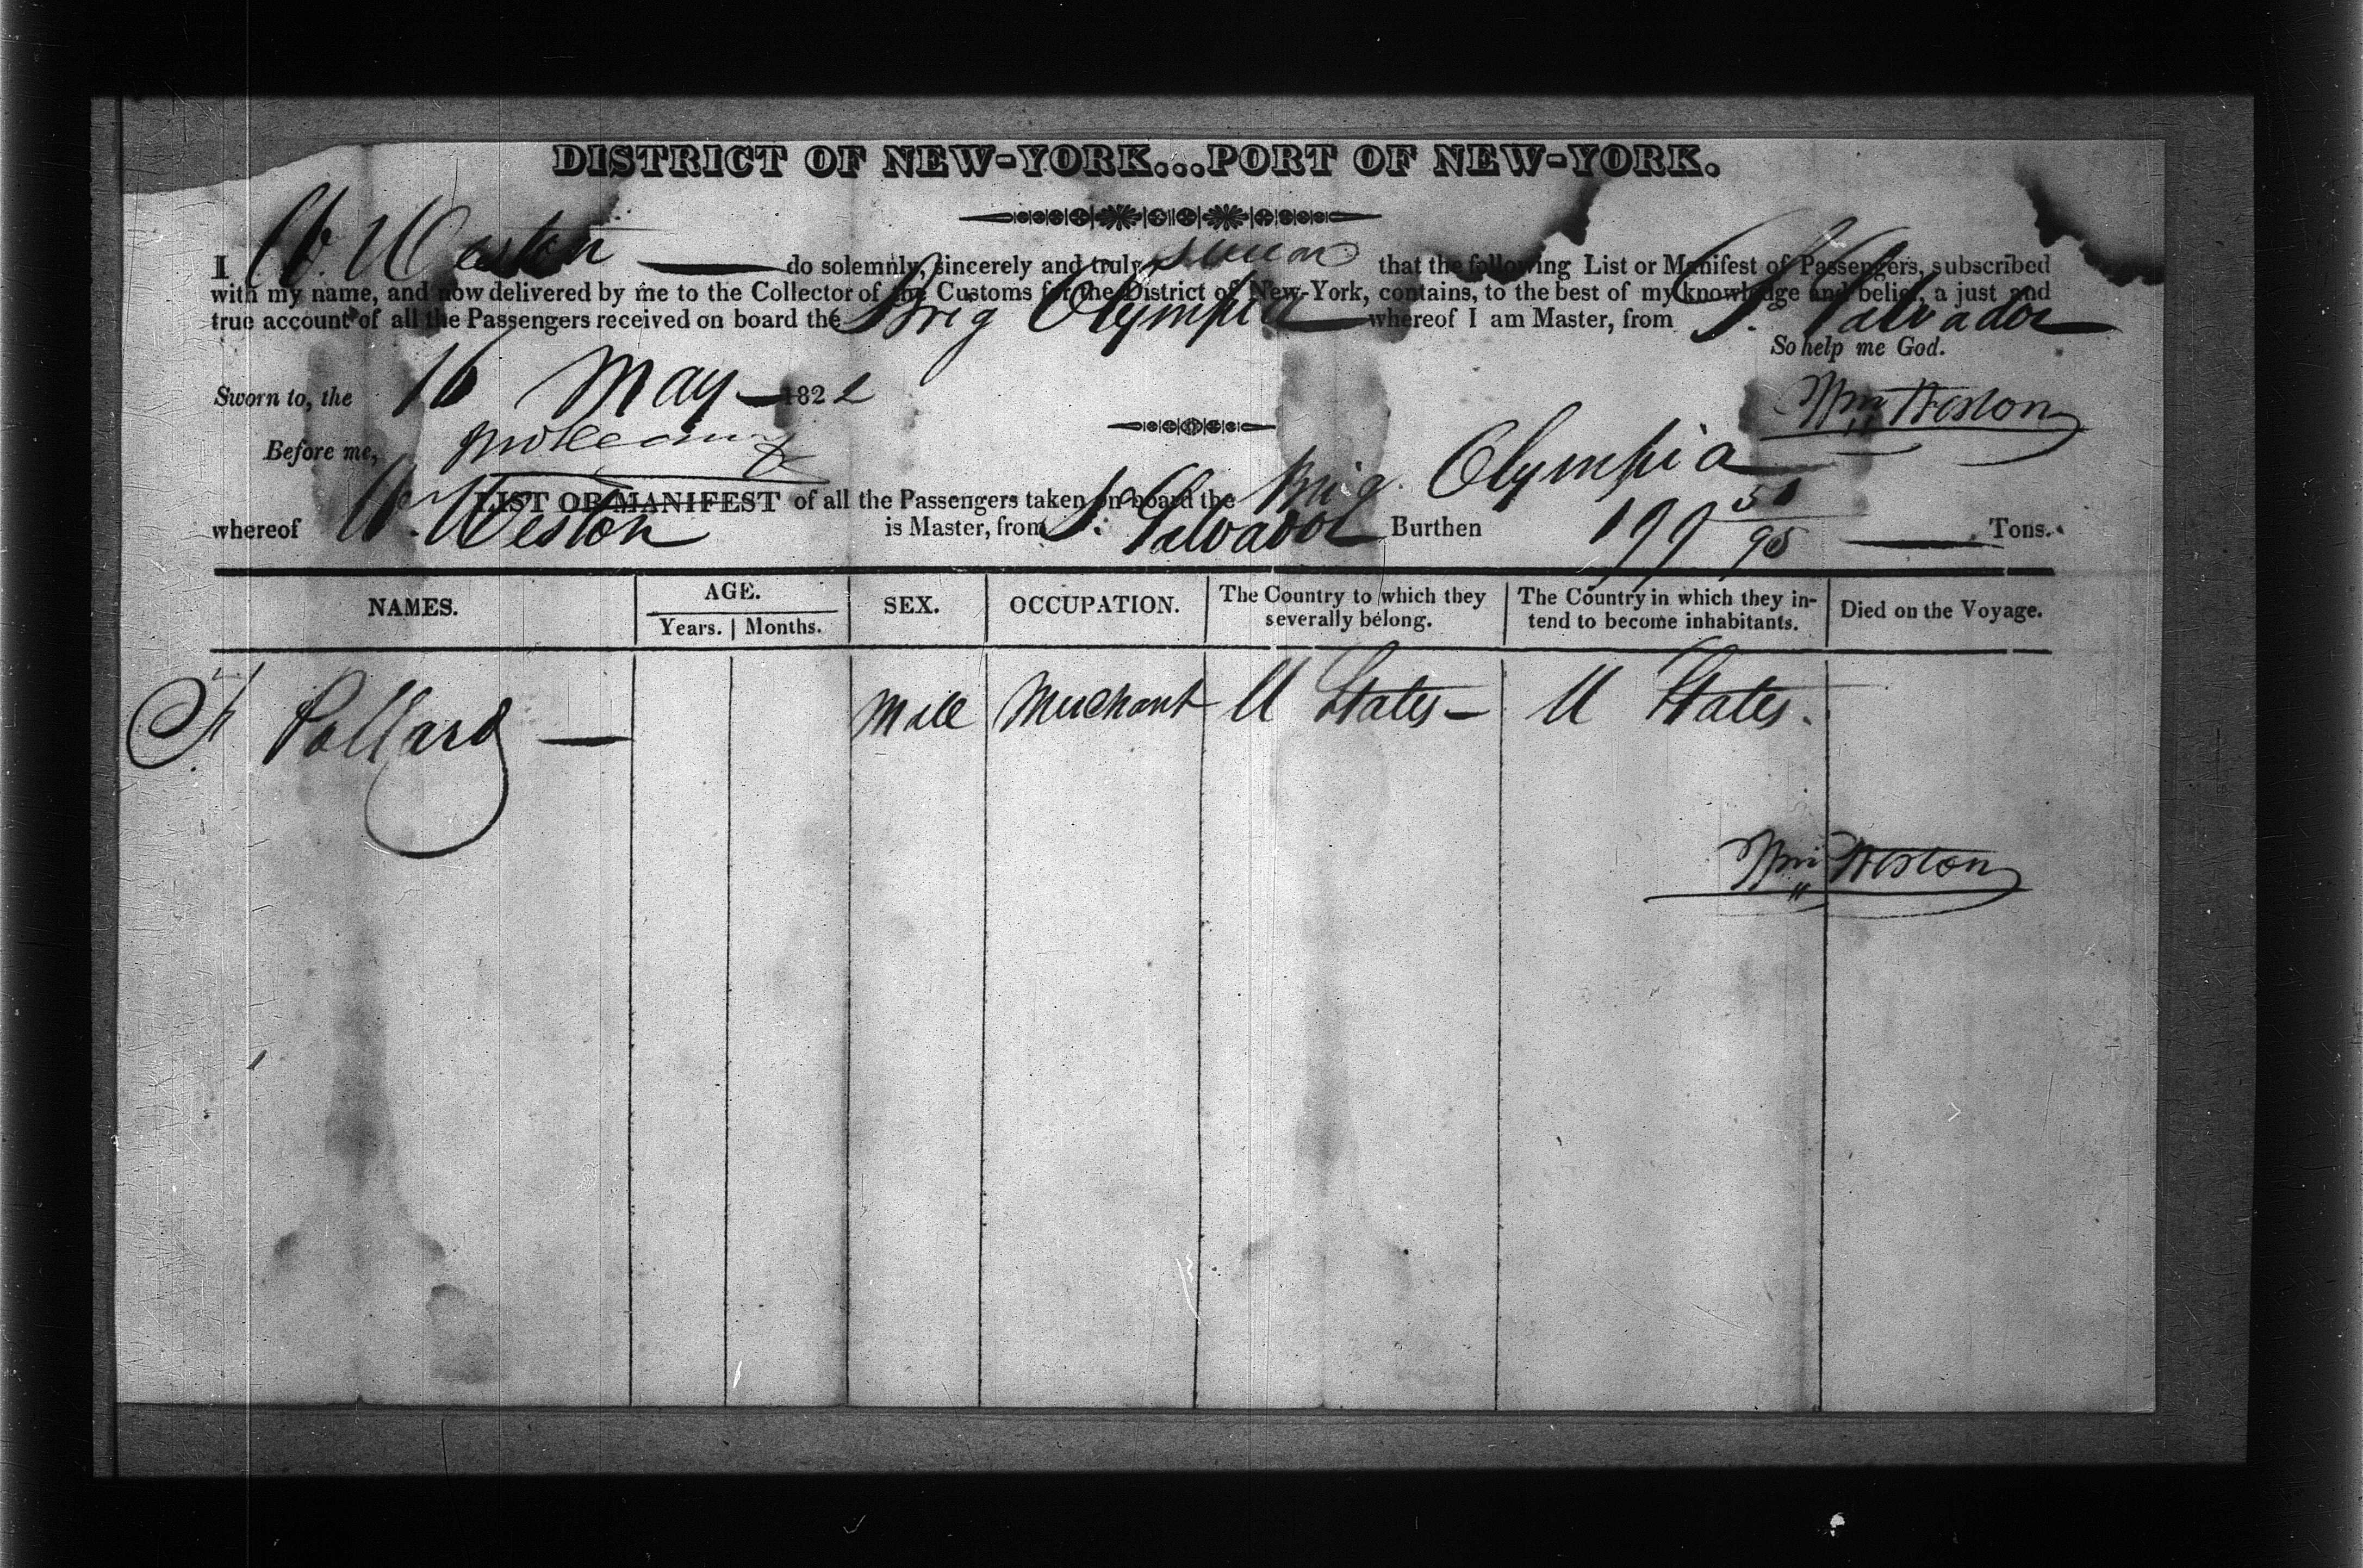 DISTRICT OF NEW-YORK...PORT OF NEW-YORK.
I W. Weston do solemnly, sincerely and truly swear that the following List or Manifest of Passengers, subscribed
with my name, and now delivered by me to the Collector of the Customs for the District of New-York, contains, to the best of my knowledge and belief, a just and
true account of all the Passengers received on board the Brig Olympia whereof I am Master, from S. Salvador
So help me God.
Sworn to, the 16 May 1822
Wm Weston
Before me,
LIST OR MANIFEST of all the Passengers taken on board the Brig Olympia
whereof W. Weston is Master, from S. Salvador Burthen 199 Tons.
NAMES. AGE. SEX. OCCUPATION. The Country to which they severally belong. The Country in which they in-tend to become inhabitants. Died on the Voyage.
Years. Months.
Pollard — Male Merchant U States — U States.
Wm Weston